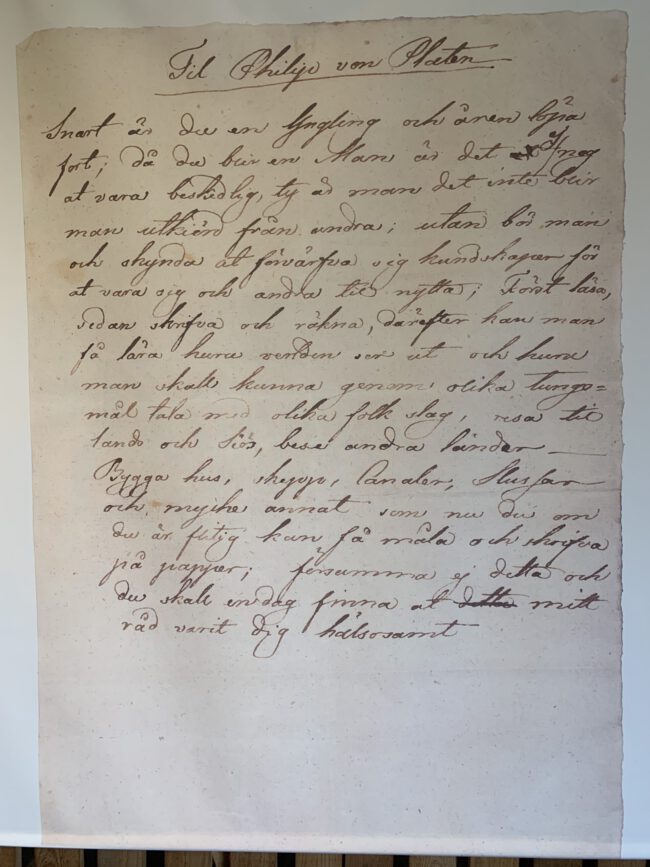 Til Philip von Platen
Snart är du en Yngling och åren löpa
fort; då du blir en Man är det ej nog
at vara beskedlig, ty är man det inte blir
man utkiörd från andra; utan bör man
och skynda at förvärfva sig kundskaper för
at vara sig och andra til nytta; Först läsa,
sedan skrifva och räkna, därefter kan man
få lära huru verlden ser ut och huru
man skall kunna genom olika tungo=
mål tala med olika folk slag, resa til
lands och siös, bese andra länder —
Bygga hus, skepp, Canaler, Slussar
och myike annat som nu du om
du är flitig kan få måla och skrifva
på papper; försumma ej detta och
du skall en dag finna at detta mitt
råd varit dig hälsosamt